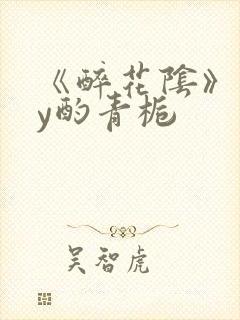 《醉花陰》
y酌青梔
吴智虎